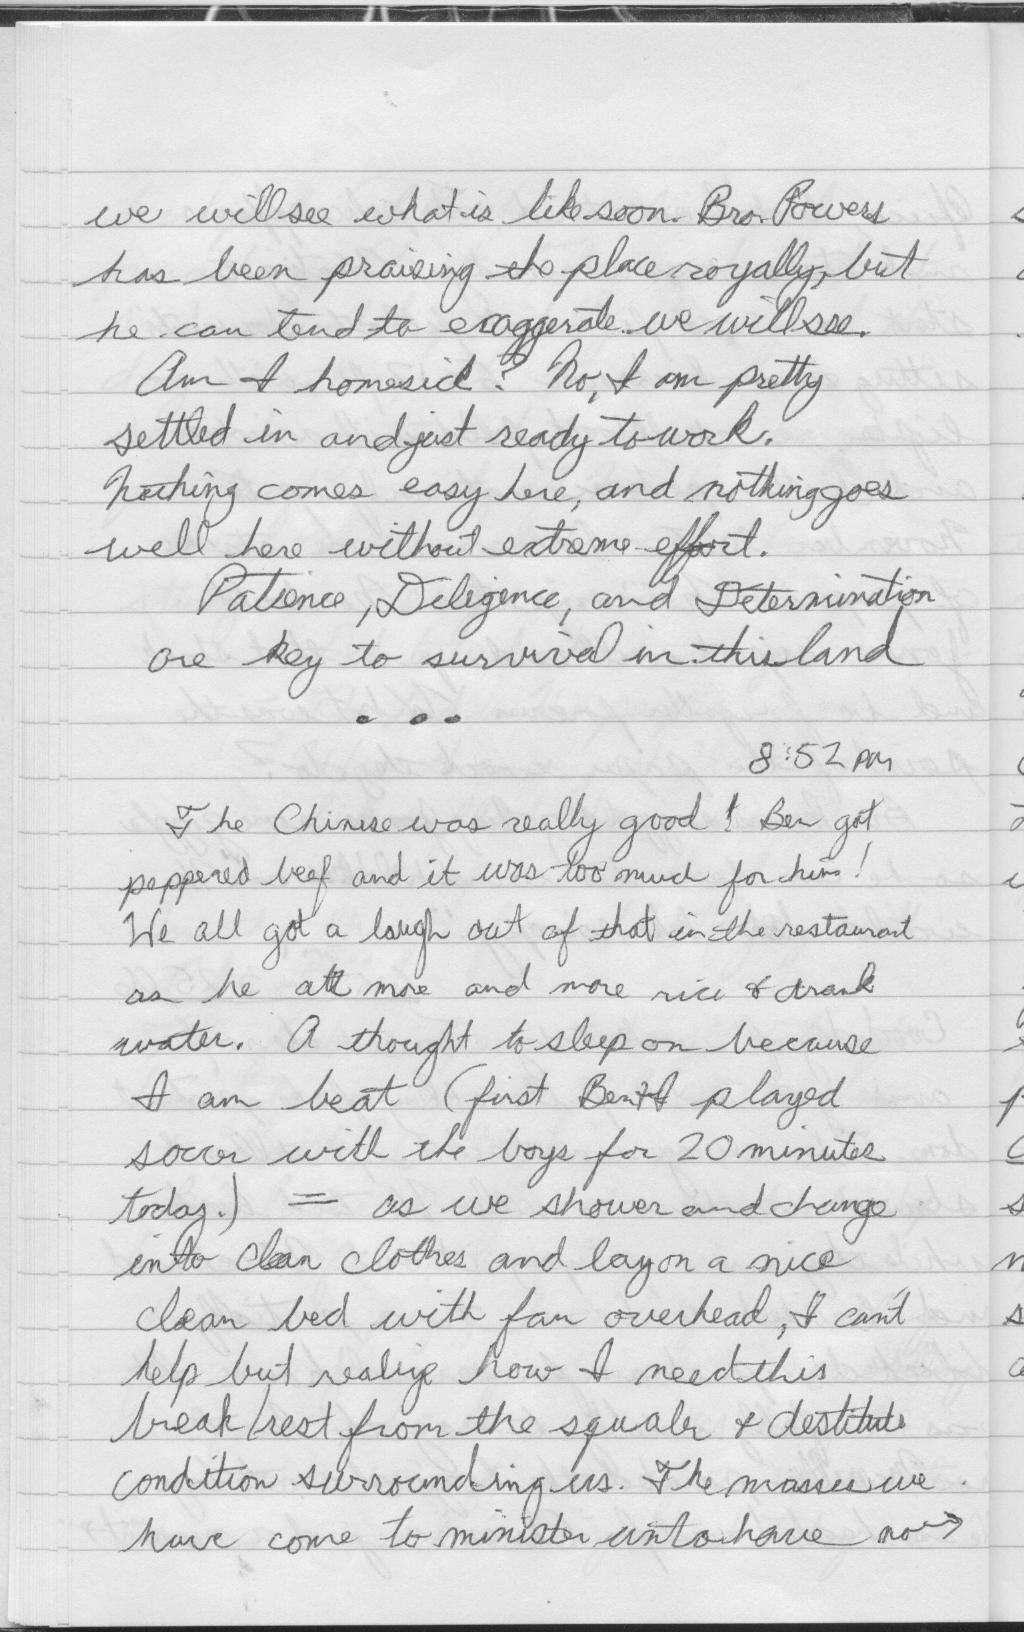 we will see what is like soon. Bro. Powers
has been praising the place royally, but
he can tend to exaggerate. we will see.
Am I homesick? No, I am pretty
settled in and just ready to work.
Nothing comes easy here, and nothing goes
well here without extreme effort.
Patience, Diligence, and Determination
are key to survival in this land
. . .
8:52 pm
The Chinese was really good! Ben got
peppered beef and it was too much for him!
We all got a laugh out of that in the restaurant
as he ate more and more rice & drank
water. A thought to sleep on because
I am beat (first Ben & I played
soccer with the boys for 20 minutes
today.) = as we shower and change
into clean clothes and lay on a nice
clean bed with fan overhead, I can't
help but realize how I need this
break/rest from the squaler & destitute
condition surrounding us. The masses we
have come to minister unto have no →